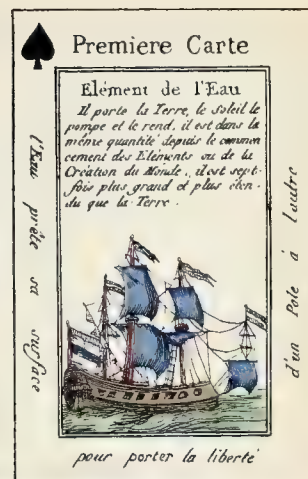 Premiere Carte
Elément de l'Eau
Il porte la Terre, le soleil le
pompe et le rend, il est dans la
même quantité depuis le commen
cement des Eléments ou de la
Création du Monde, il est sept
fois plus grand et plus éten-
du que la Terre.
l'Eau prête sa surface
d'un Pole à l'autre
pour porter la liberté